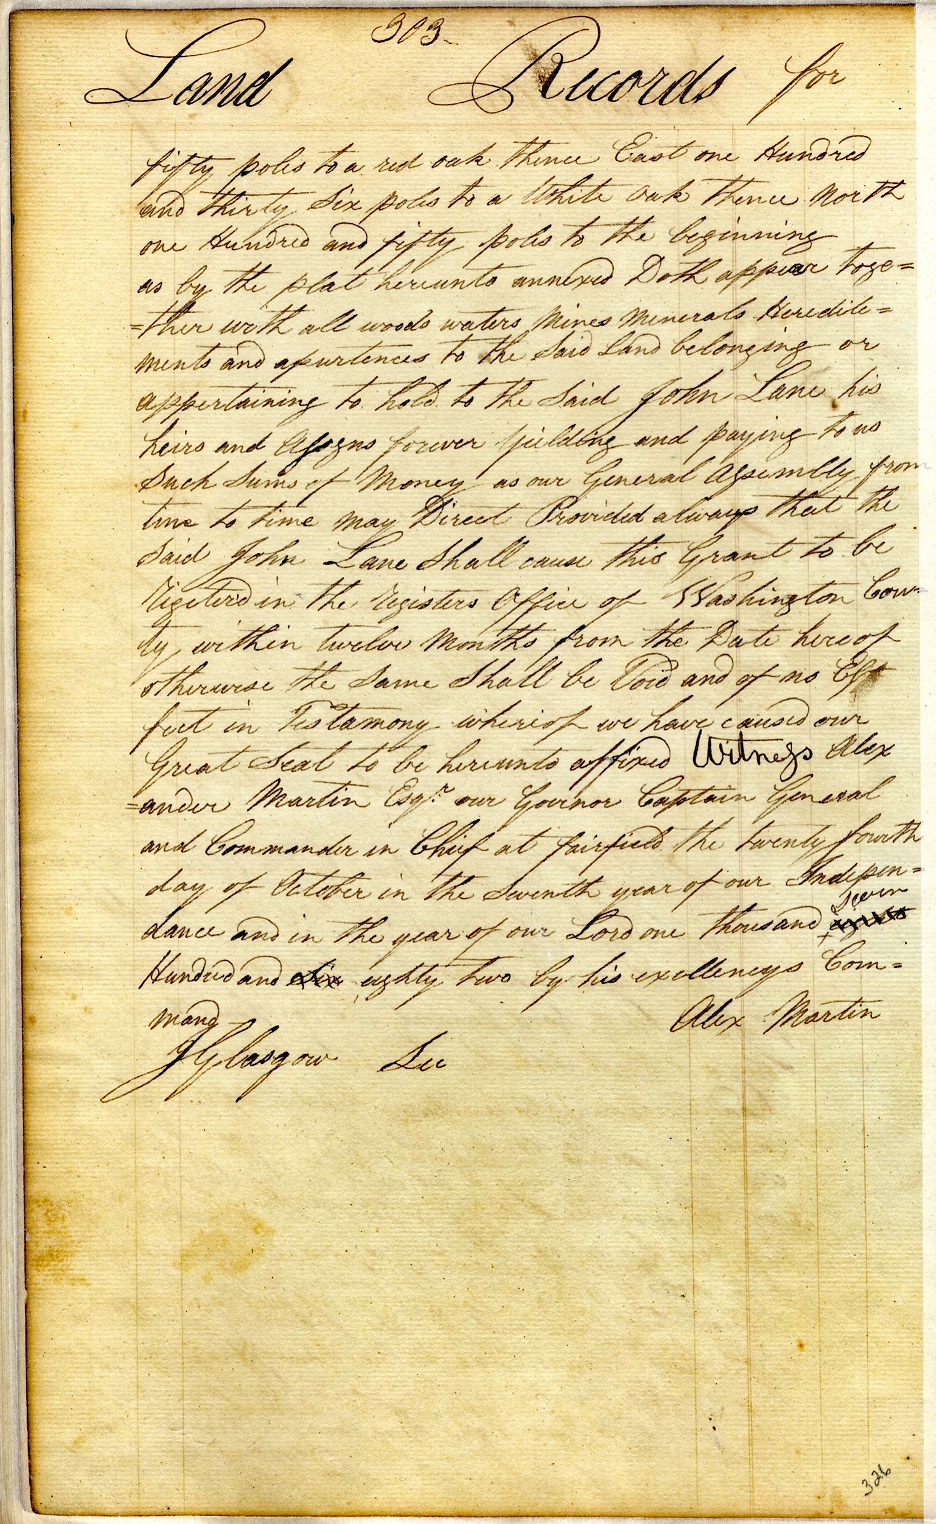 303
Land Records for
fifty poles to a red oak thence East one Hundred
and thirty Six poles to a White Oak thence North
one Hundred and fifty poles to the beginning
as by the plat hereunto annexed Doth appear toge=
=ther with all woods waters Mines Minerals Heredite=
ments and apurtences to the Said Land belonging or
appertaining to hold to the Said John Lane his
heirs and Assigns forever yielding and paying to us
Such Sums of Money as our General Assembly from
time to time may Direct Provided always that the
Said John Lane Shall cause this Grant to be
Registerd in the Registers Office of Washington Coun
ty within twelve Months from the Date hereof
otherwise the Same Shall be Void and of no Eff
fect in Testamony whereof we have caused our
Great Seal to be hereunto affixed Witness Alex
=ander Martin Esqr. our Govrnor Captain General
and Commander in Chief at fairfield the twenty fourth
day of October in the Seventh year of our Indepen=
Seven
dance and in the year of our Lord one thousand
Hundred and Six eighty two by his exellencys Com=
mand Alex Martin
J Glasgow Sec
326